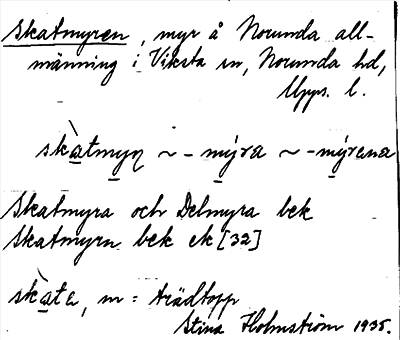 Skatmyren, myr å Norunda all-
männing i Viksta sn, Norunda hd,
Upps. l.
skàtmyṇ ~ - mýra ~ - mýrena
Skatmyra och Delmyra bek
Skatmyrn bek ek [32]
skàta, m = trädtopp
Stina Holmström 1935.